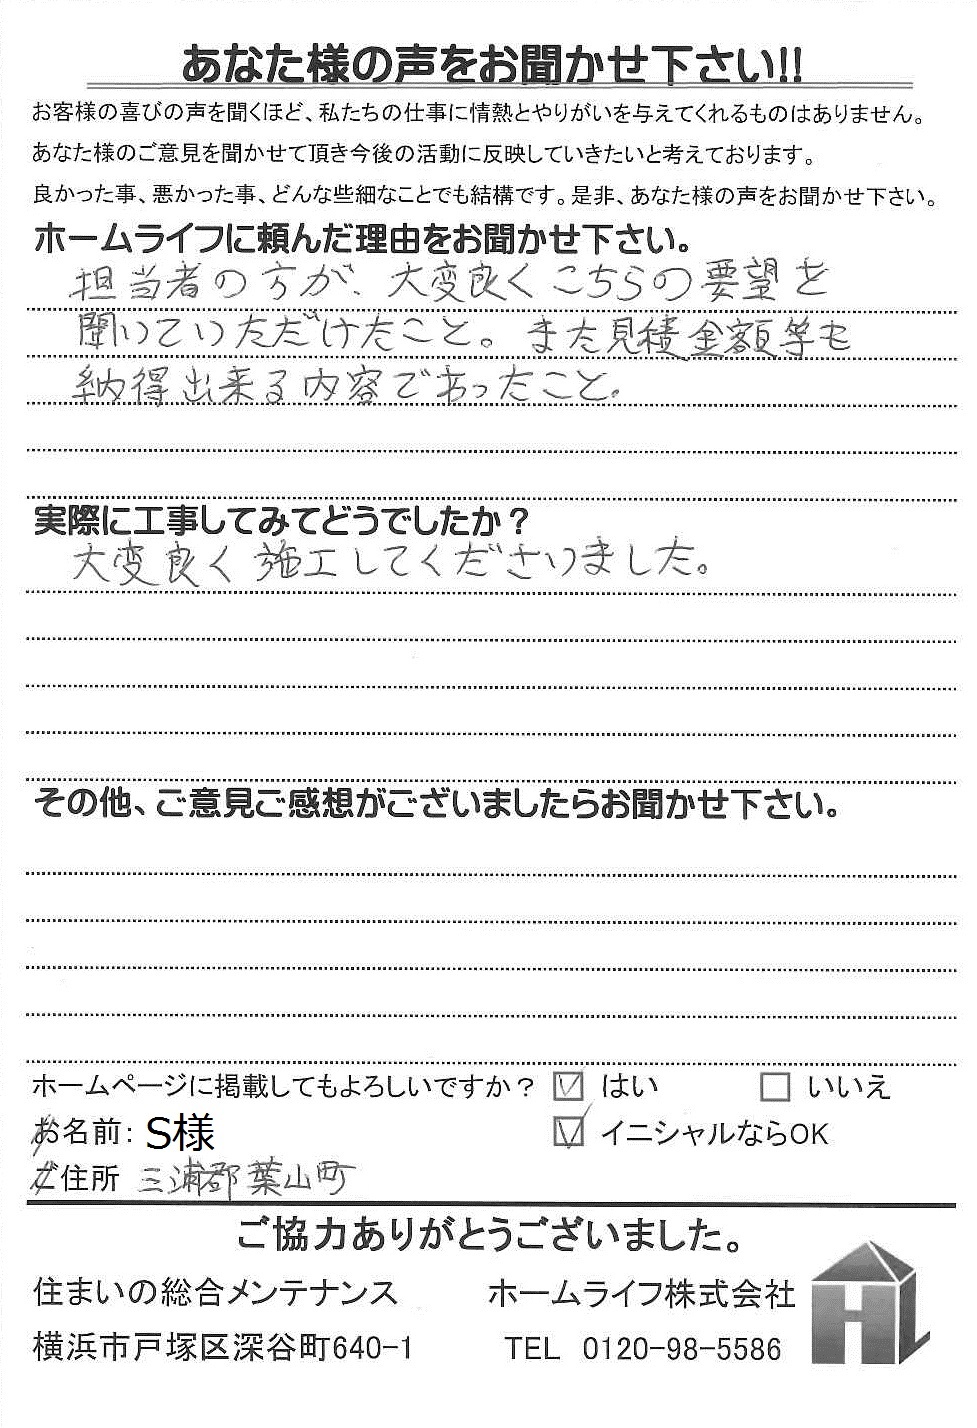 あなた様の声をお聞かせ下さい!!
お客様の喜びの声を聞くほど、私たちの仕事に情熱とやりがいを与えてくれるものはありません。
あなた様のご意見を聞かせて頂き今後の活動に反映していきたいと考えております。
良かった事、悪かった事、どんな些細なことでも結構です。是非、あなた様の声をお聞かせ下さい。
ホームライフに頼んだ理由をお聞かせ下さい。
担当者の方が、大変良くこちらの要望を
聞いていただけたこと。また見積金額等も
納得出来る内容であったこと。
実際に工事してみてどうでしたか？
大変良く施工してくださりました。
その他、ご意見ご感想がございましたらお聞かせ下さい。
ホームページに掲載してもよろしいですか？ はい いいえ
お名前: S様 イニシャルならOK
ご住所 三浦郡葉山町
ご協力ありがとうございました。
住まいの総合メンテナンス ホームライフ株式会社
横浜市戸塚区深谷町640-1 TEL 0120-98-5586
HL